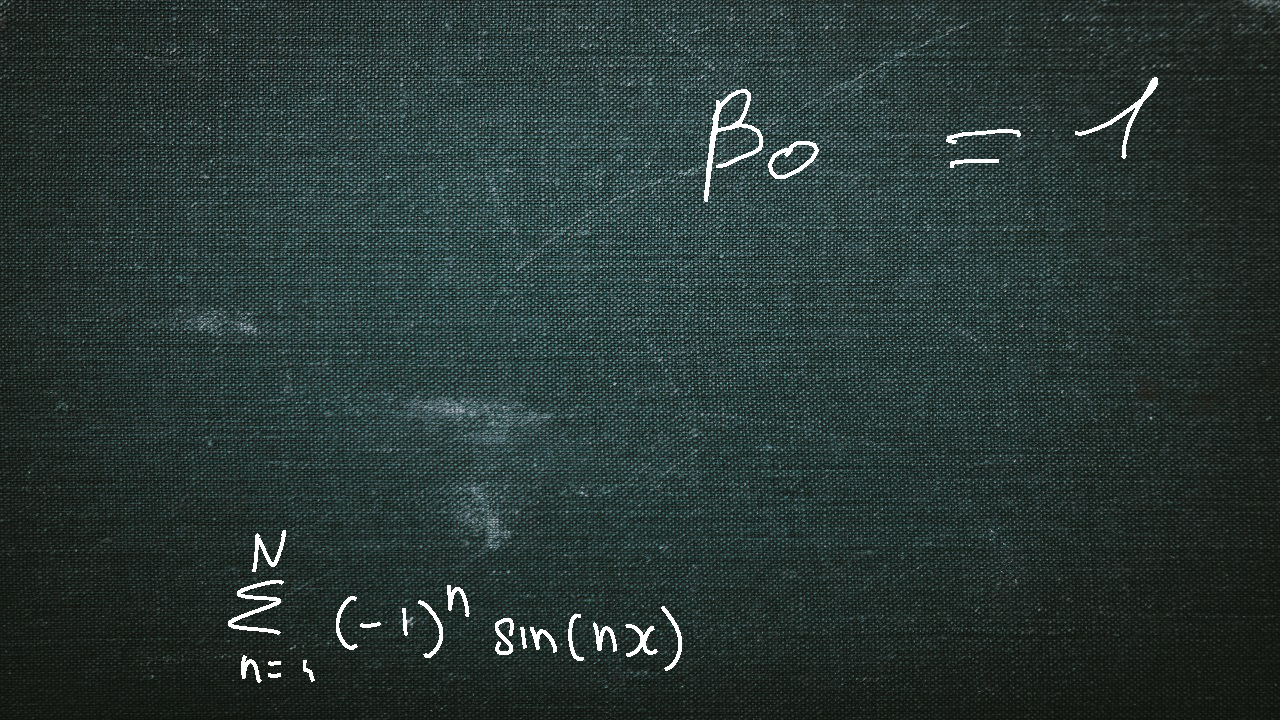 β₀ = 1
∑_{n=1}^{N} (-1)^n sin(nx)